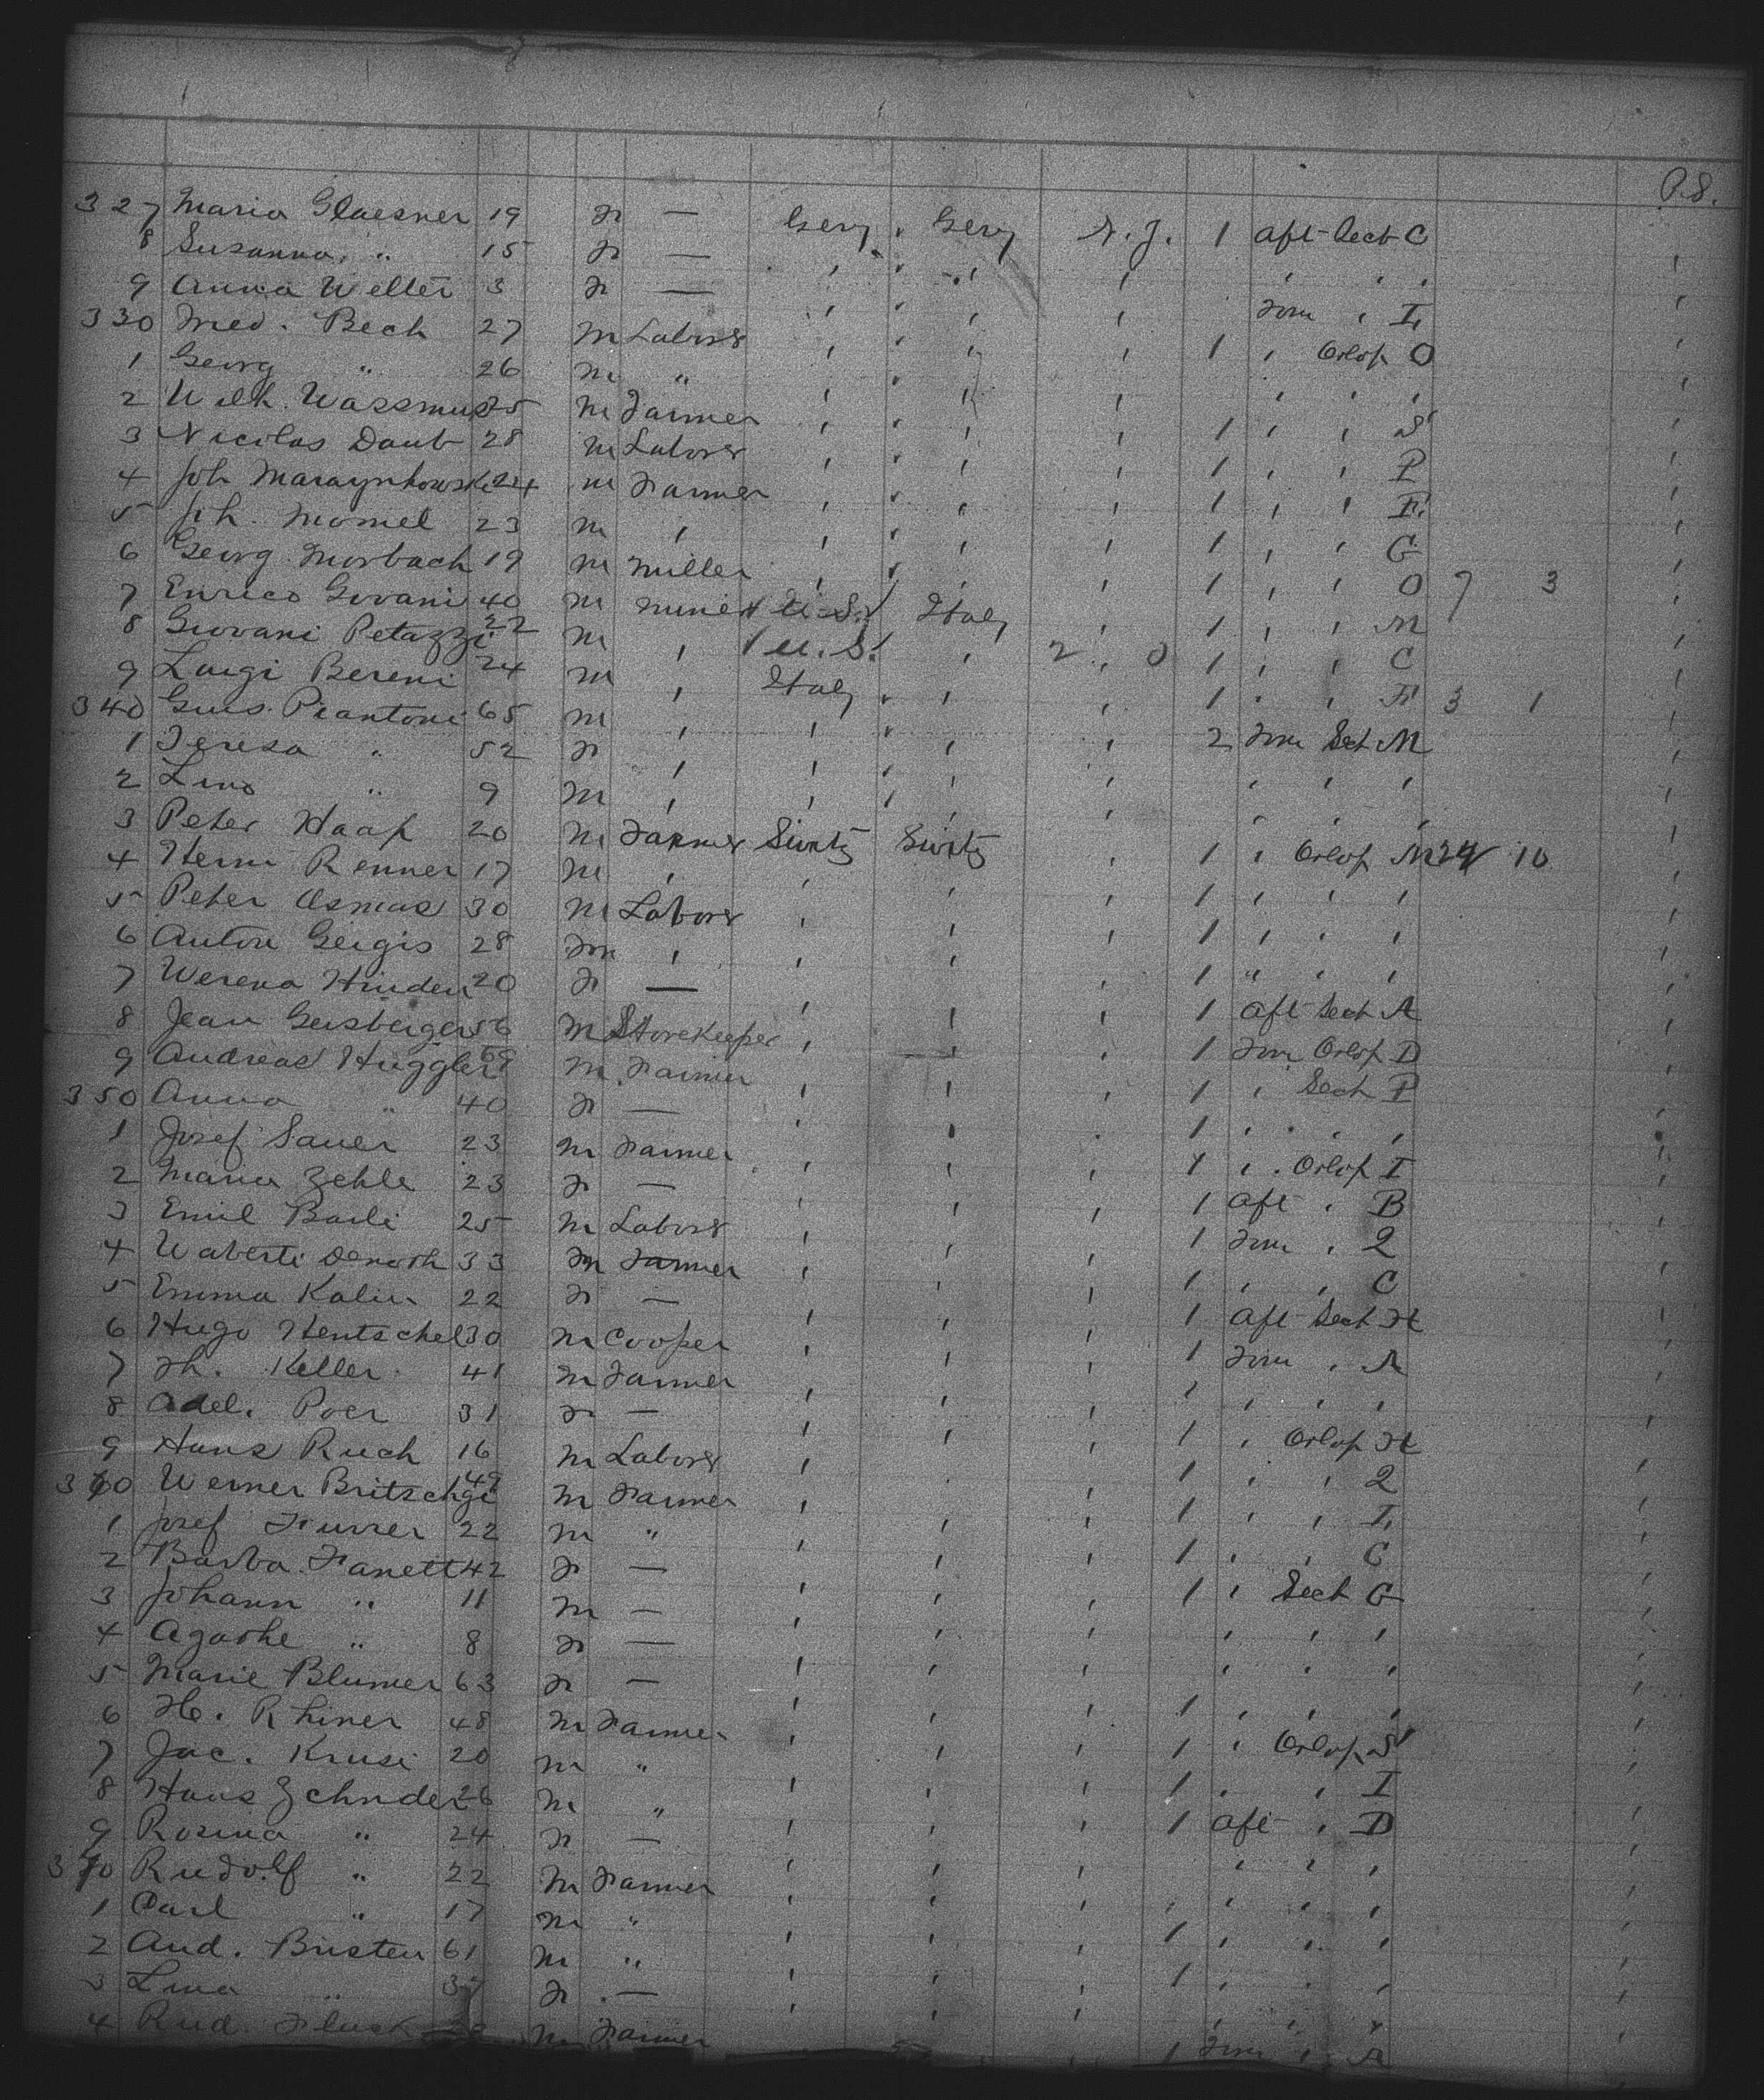 P.S.
327 Maria Glaesner 19 F — Gery " Gery N.Y. 1 Aft Sect C
8 Susanna " 15 F — " " " " " " "
9 Anna Welter 3 F — " " " " For " I,
330 Fried. Bech 27 M Laborer " " " " 1 " Orlop O
1 Georg " 26 M " " " " " " " "
2 Wilh. Wassmus 25 M Farmer " " " " 1 " " S
3 Nicolas Daub 28 M Laborer " " " " 1 " " P
4 Joh 24 M Farmer " " " " 1 " " F
5 Joh. Momel 23 M " " " " " 1 " " G
6 Georg Morbach 19 M Miller " " " " 1 " " O 7 3
7 Enrico Govani 40 M Miner U.S. Italy " 1 " " M
8 Giovani Petazzi 22 M " U.S. " 2 " 0 1 " " C
9 Luigi Bereni 24 M " Italy " " " 1 " " F 3 1
340 Gius. Piantoni 65 M " " " " " 2 For Sect M
1 Teresa " 52 F " " " " " " " "
2 Lino " 9 M " " " " " " " "
3 Peter Haap 20 M Farmer Switz Switz " 1 " Orlop M 24 10
4 Herm Renner 17 M " " " " 1 " " "
5 Peter Osmas 30 M Laborer " " " 1 " " "
6 Anton Geigis 28 M " " " " 1 " " "
7 Werena Hinden 20 F — " " " 1 Aft Sect A
8 Jean Geisberger 56 M Storekeeper " " " 1 For Orlop D
9 Andreas Huggler 69 M Farmer " " " 1 " Sect P
350 Anna " 40 F — " " " 1 " " "
1 Josef Sauer 23 M Farmer " " " 1 " Orlop I
2 Maria Zehle 23 F — " " " 1 Aft " B
3 Emil Barli 25 M Laborer " " " 1 For " Q
4 Waberti 33 M Farmer " " " 1 " " C
5 Emma Kalin 22 F — " " " 1 Aft Sect H
6 Hugo Hentschel 30 M Cooper " " " 1 For " A
7 Th. Keller 41 M Farmer " " " 1 " " "
8 Adel. Poer 31 F — " " " 1 " Orlop H
9 Hans Ruch 16 M Laborer " " " 1 " " Q
360 Werner Britschgi 49 M Farmer " " " 1 " " I,
1 Josef Furrer 22 M " " " " 1 " " C
2 Barba. Fanett 42 F — " " " 1 " Sect G
3 Johann " 11 M — " " " " " "
4 Agathe " 8 F — " " " " "
5 Marie Blumer 63 F — " " " 1 " " "
6 He. Rhiner 48 M Farmer " " " 1 " Orlop S
7 Jac. Krusi 20 M " " " " 1 " " I
8 Hans Zehnder 26 M " " " " 1 Aft " D
9 Rosina " 24 F — " " " " " "
370 Rudolf " 22 M Farmer " " " " " " "
1 Carl " 17 M " " " " 1 " " "
2 And. Busten 61 M " " " " 1 " " "
3 Lina " 37 F — " " " " " "
4 Rud. M Farmer " 1 For " A